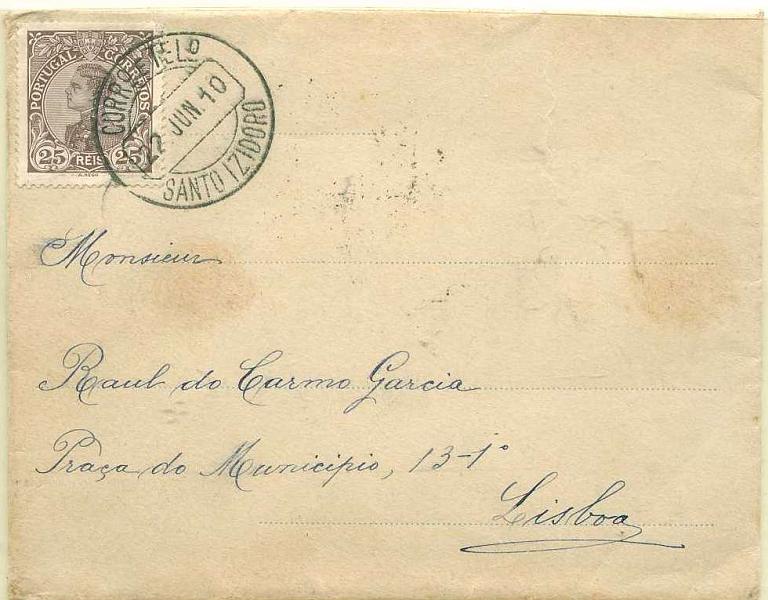 PORTUGAL CORREIOS
25 REIS 25
CORRO E TELO
22 JUN. 10
SANTO IZIDORO
Monsieur
Raul do Carmo Garcia
Praça do Municipio, 13-1°
Lisboa